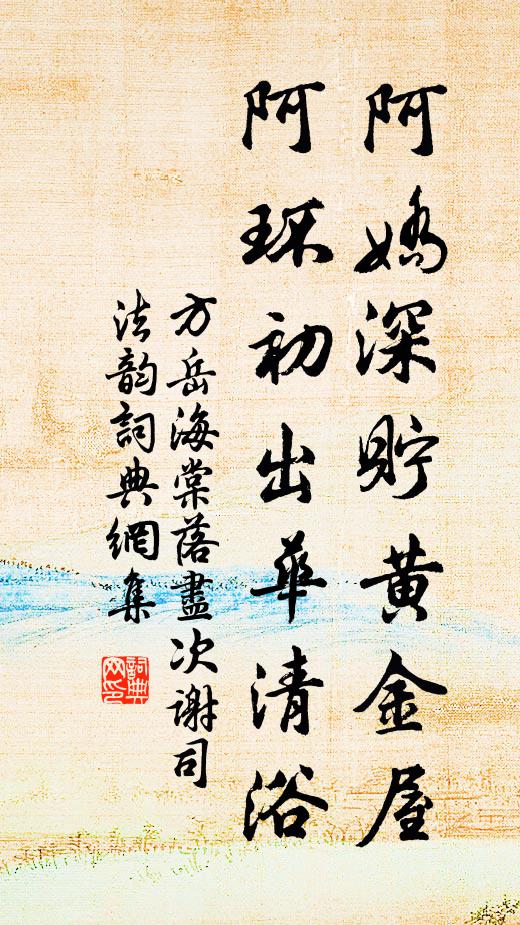 阿嬌深貯黃金屋
阿環初出華清浴
方岳海棠落盡次謝司
法韵詞典網集
詞典
网印